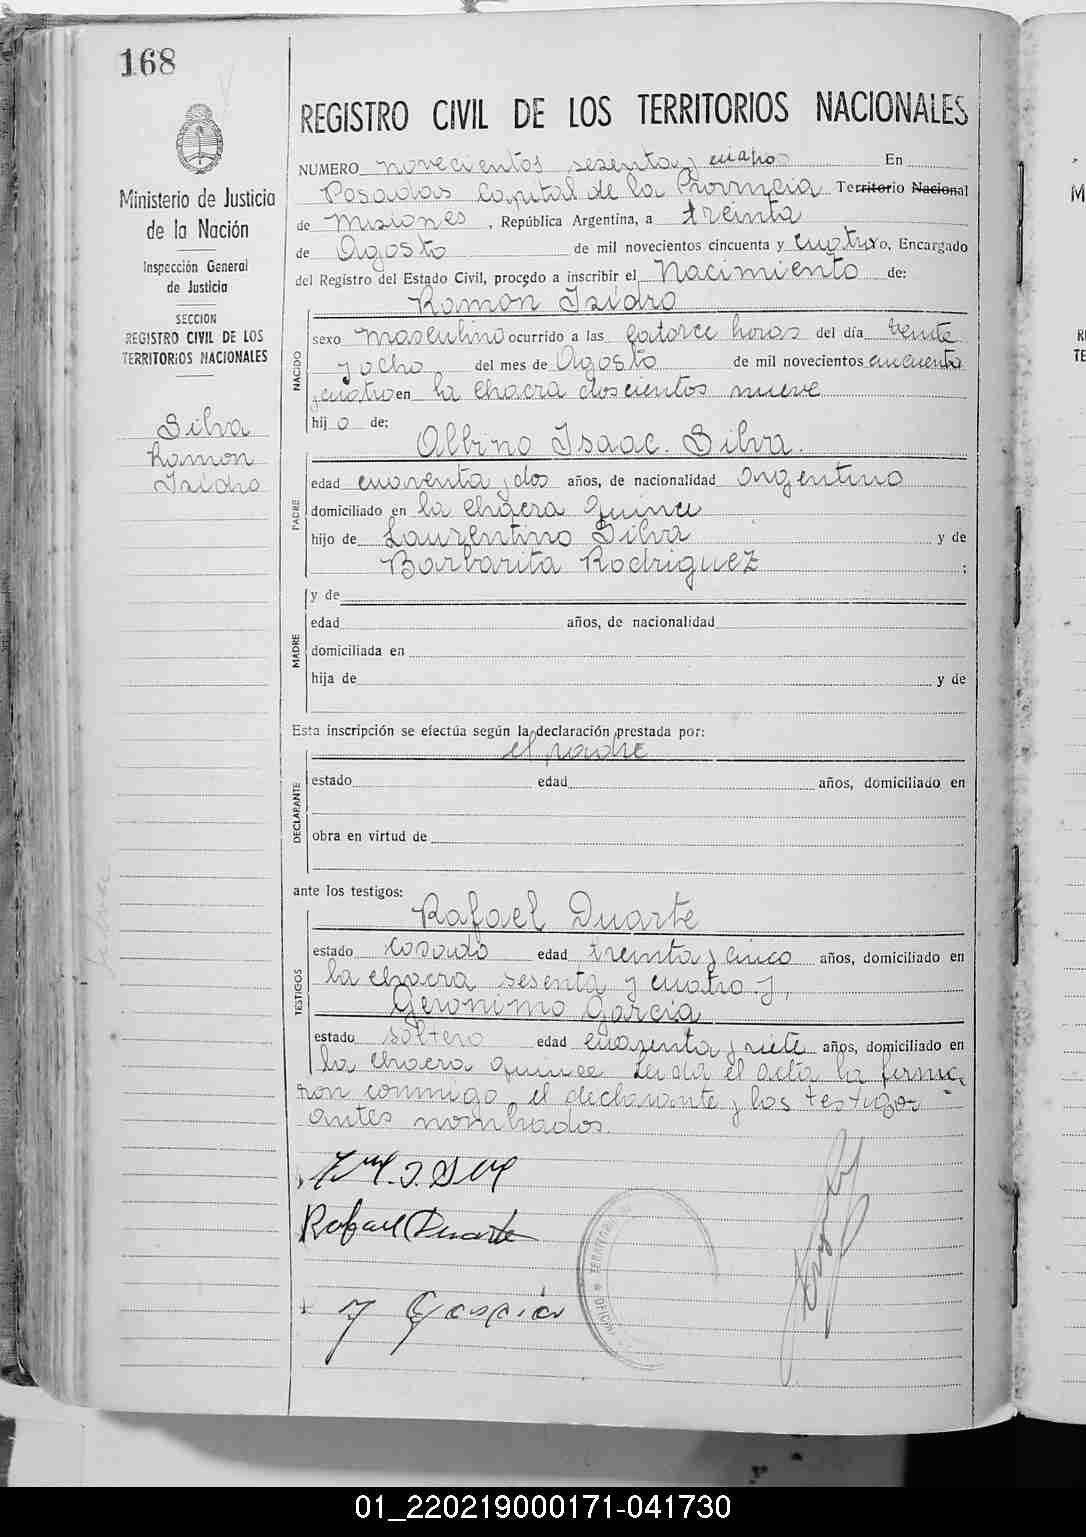 168
REGISTRO CIVIL DE LOS TERRITORIOS NACIONALES
Ministerio de Justicia
de la Nación
Inspección General
de Justicia
SECCION
REGISTRO CIVIL DE LOS
TERRITORIOS NACIONALES
Silva
Ramon
Izidro
NUMERO novecientos sesenta y cuatro En
Posadas Capital de la Provincia Territorio Nacional
de Misiones, República Argentina, a treinta
de Agosto de mil novecientos cincuenta y cuatro yo, Encargado
del Registro del Estado Civil, procedo a inscribir el Nacimiento de:
Ramon Izidro
NACIDO
sexo masculino ocurrido a las catorce horas del día veinte
y ocho del mes de Agosto de mil novecientos cincuenta
y cuatro en la chacra doscientos nueve
hijo de:
Albino Isaac. Silva.
PADRE
edad cuarenta y dos años, de nacionalidad argentino
domiciliado en la chacra quince
hijo de Laurentino Silva y de
Barbarita Rodriguez ;
MADRE
y de
edad años, de nacionalidad
domiciliada en
hija de y de
Esta inscripción se efectúa según la declaración prestada por:
el padre
DECLARANTE
estado edad años, domiciliado en
obra en virtud de
ante los testigos:
Rafael Duarte
TESTIGOS
estado casado edad treinta y cinco años, domiciliado en
la chacra sesenta y cuatro y,
Geronimo Garcia
estado soltero edad cuarenta y siete años, domiciliado en
la chacra quince Leida el acta la firma-
ron conmigo el declarante y los testigos
antes nombrados.
Rafael Duarte
J Garcia
01_220219000171-041730